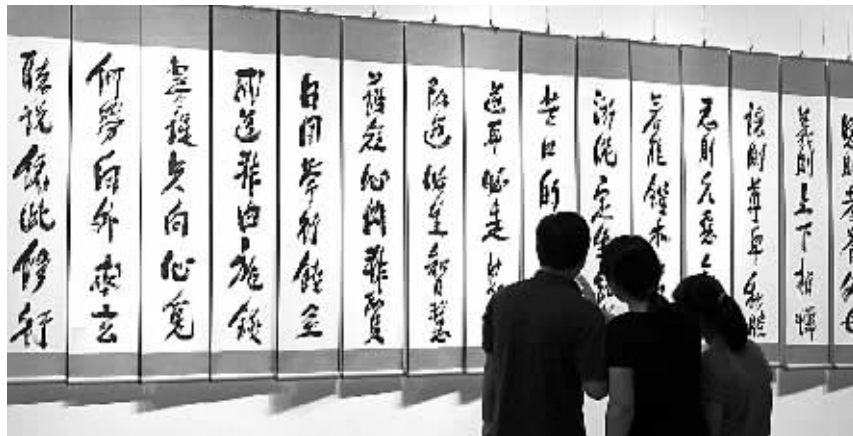 恩則孝養父母
義則上下相憐
讓則尊卑和睦
忍則衆惡
若能鑽木
淤泥定生
苦口的
逆耳必是
改過必生智慧
護短心內非賢
日用常行饒益
成道非由施錢
菩提只向心覓
何勞向外求玄
聽說依此修行